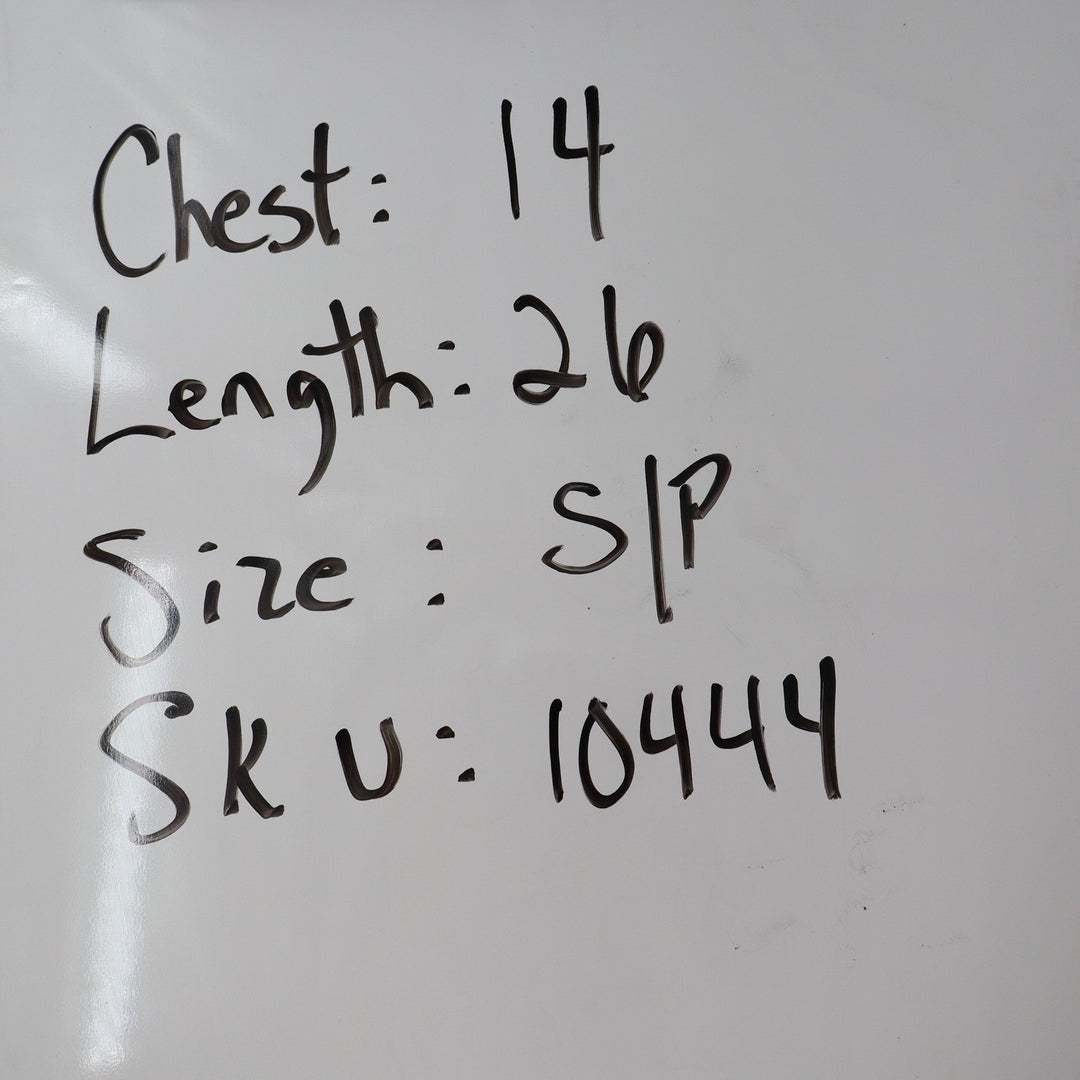 Chest: 14
Length: 26
Size: S/P
SKU: 10444